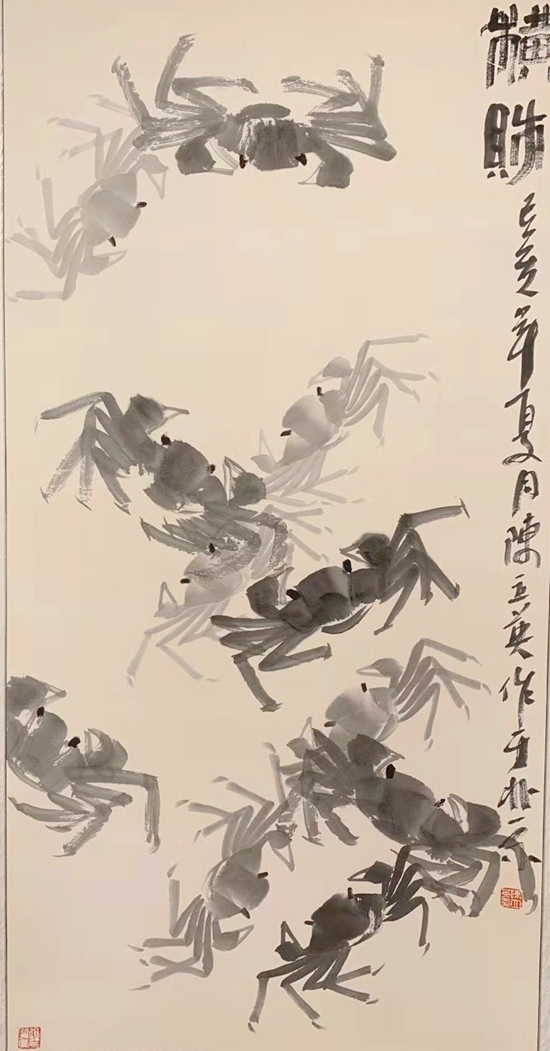 横财
己亥年夏月陳立英作于北京